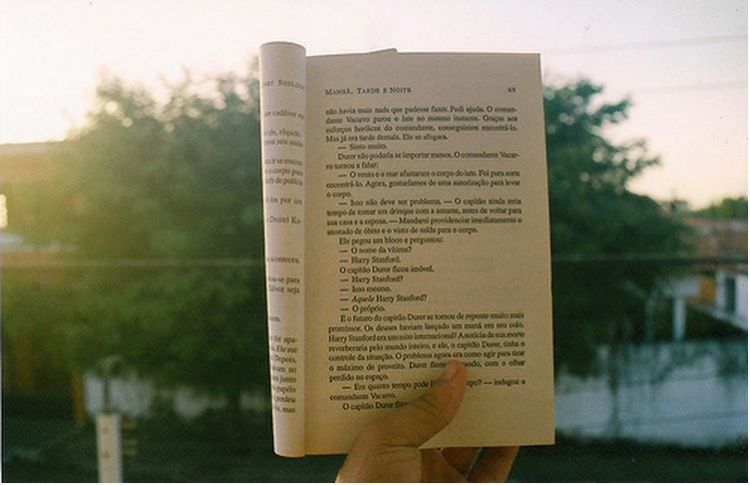 NEY SHELDO
MANHÃ, TARDE E NOITE 49
não havia mais nada que pudesse fazer. Pedi ajuda. O coman-
dante Vacarro parou o iate no mesmo instante. Graças aos
esforços heróicos do comandante, conseguimos encontrá-lo.
Mas já era tarde demais. Ele se afogara.
— Sinto muito.
Durer não poderia se importar menos. O comandante Vacar-
ro tornou a falar:
— O vento e o mar afastaram o corpo do iate. Foi pura sorte
encontrá-lo. Agora, gostaríamos de uma autorização para levar
o corpo.
— Isso não deve ser problema. — O capitão ainda teria
tempo de tomar um drinque com a amante, antes de voltar para
sua casa e a esposa. — Mandarei providenciar imediatamente o
atestado de óbito e o visto de saída para o corpo.
Ele pegou um bloco e perguntou:
— O nome da vítima?
— Harry Stanford.
O capitão Durer ficou imóvel.
— Harry Stanford?
— Isso mesmo.
— Aquele Harry Stanford?
— O próprio.
E o futuro do capitão Durer se tornou de repente muito mais
promissor. Os deuses haviam lançado um maná em seu colo.
Harry Stanford era um mito internacional! A notícia de sua morte
reverberaria pelo mundo inteiro, e ele, o capitão Durer, tinha o
controle da situação. O problema agora era como agir para tirar
o máximo de proveito. Durer ficou ado, com o olhar
perdido no espaço.
— Em quanto tempo pode rpo? — indagou o
comandante Vacarro.
O capitão Durer